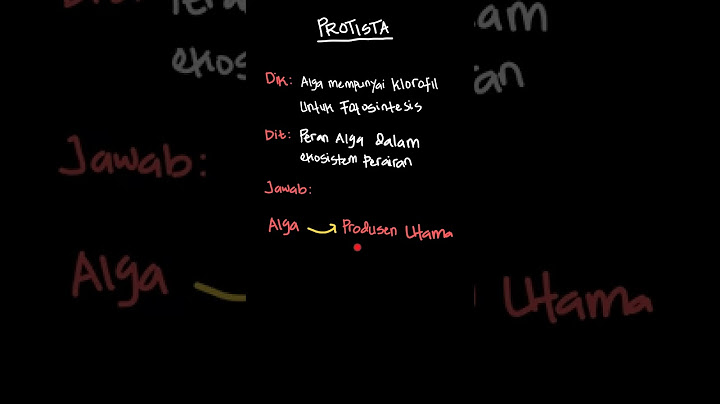 PROTISTA
Dik: Alga mempunyai Klorofil
Untuk Fotosintesis
Dit: Peran Alga dalam
ekosistem Perairan
Jawab:
Alga → Produsen Utama